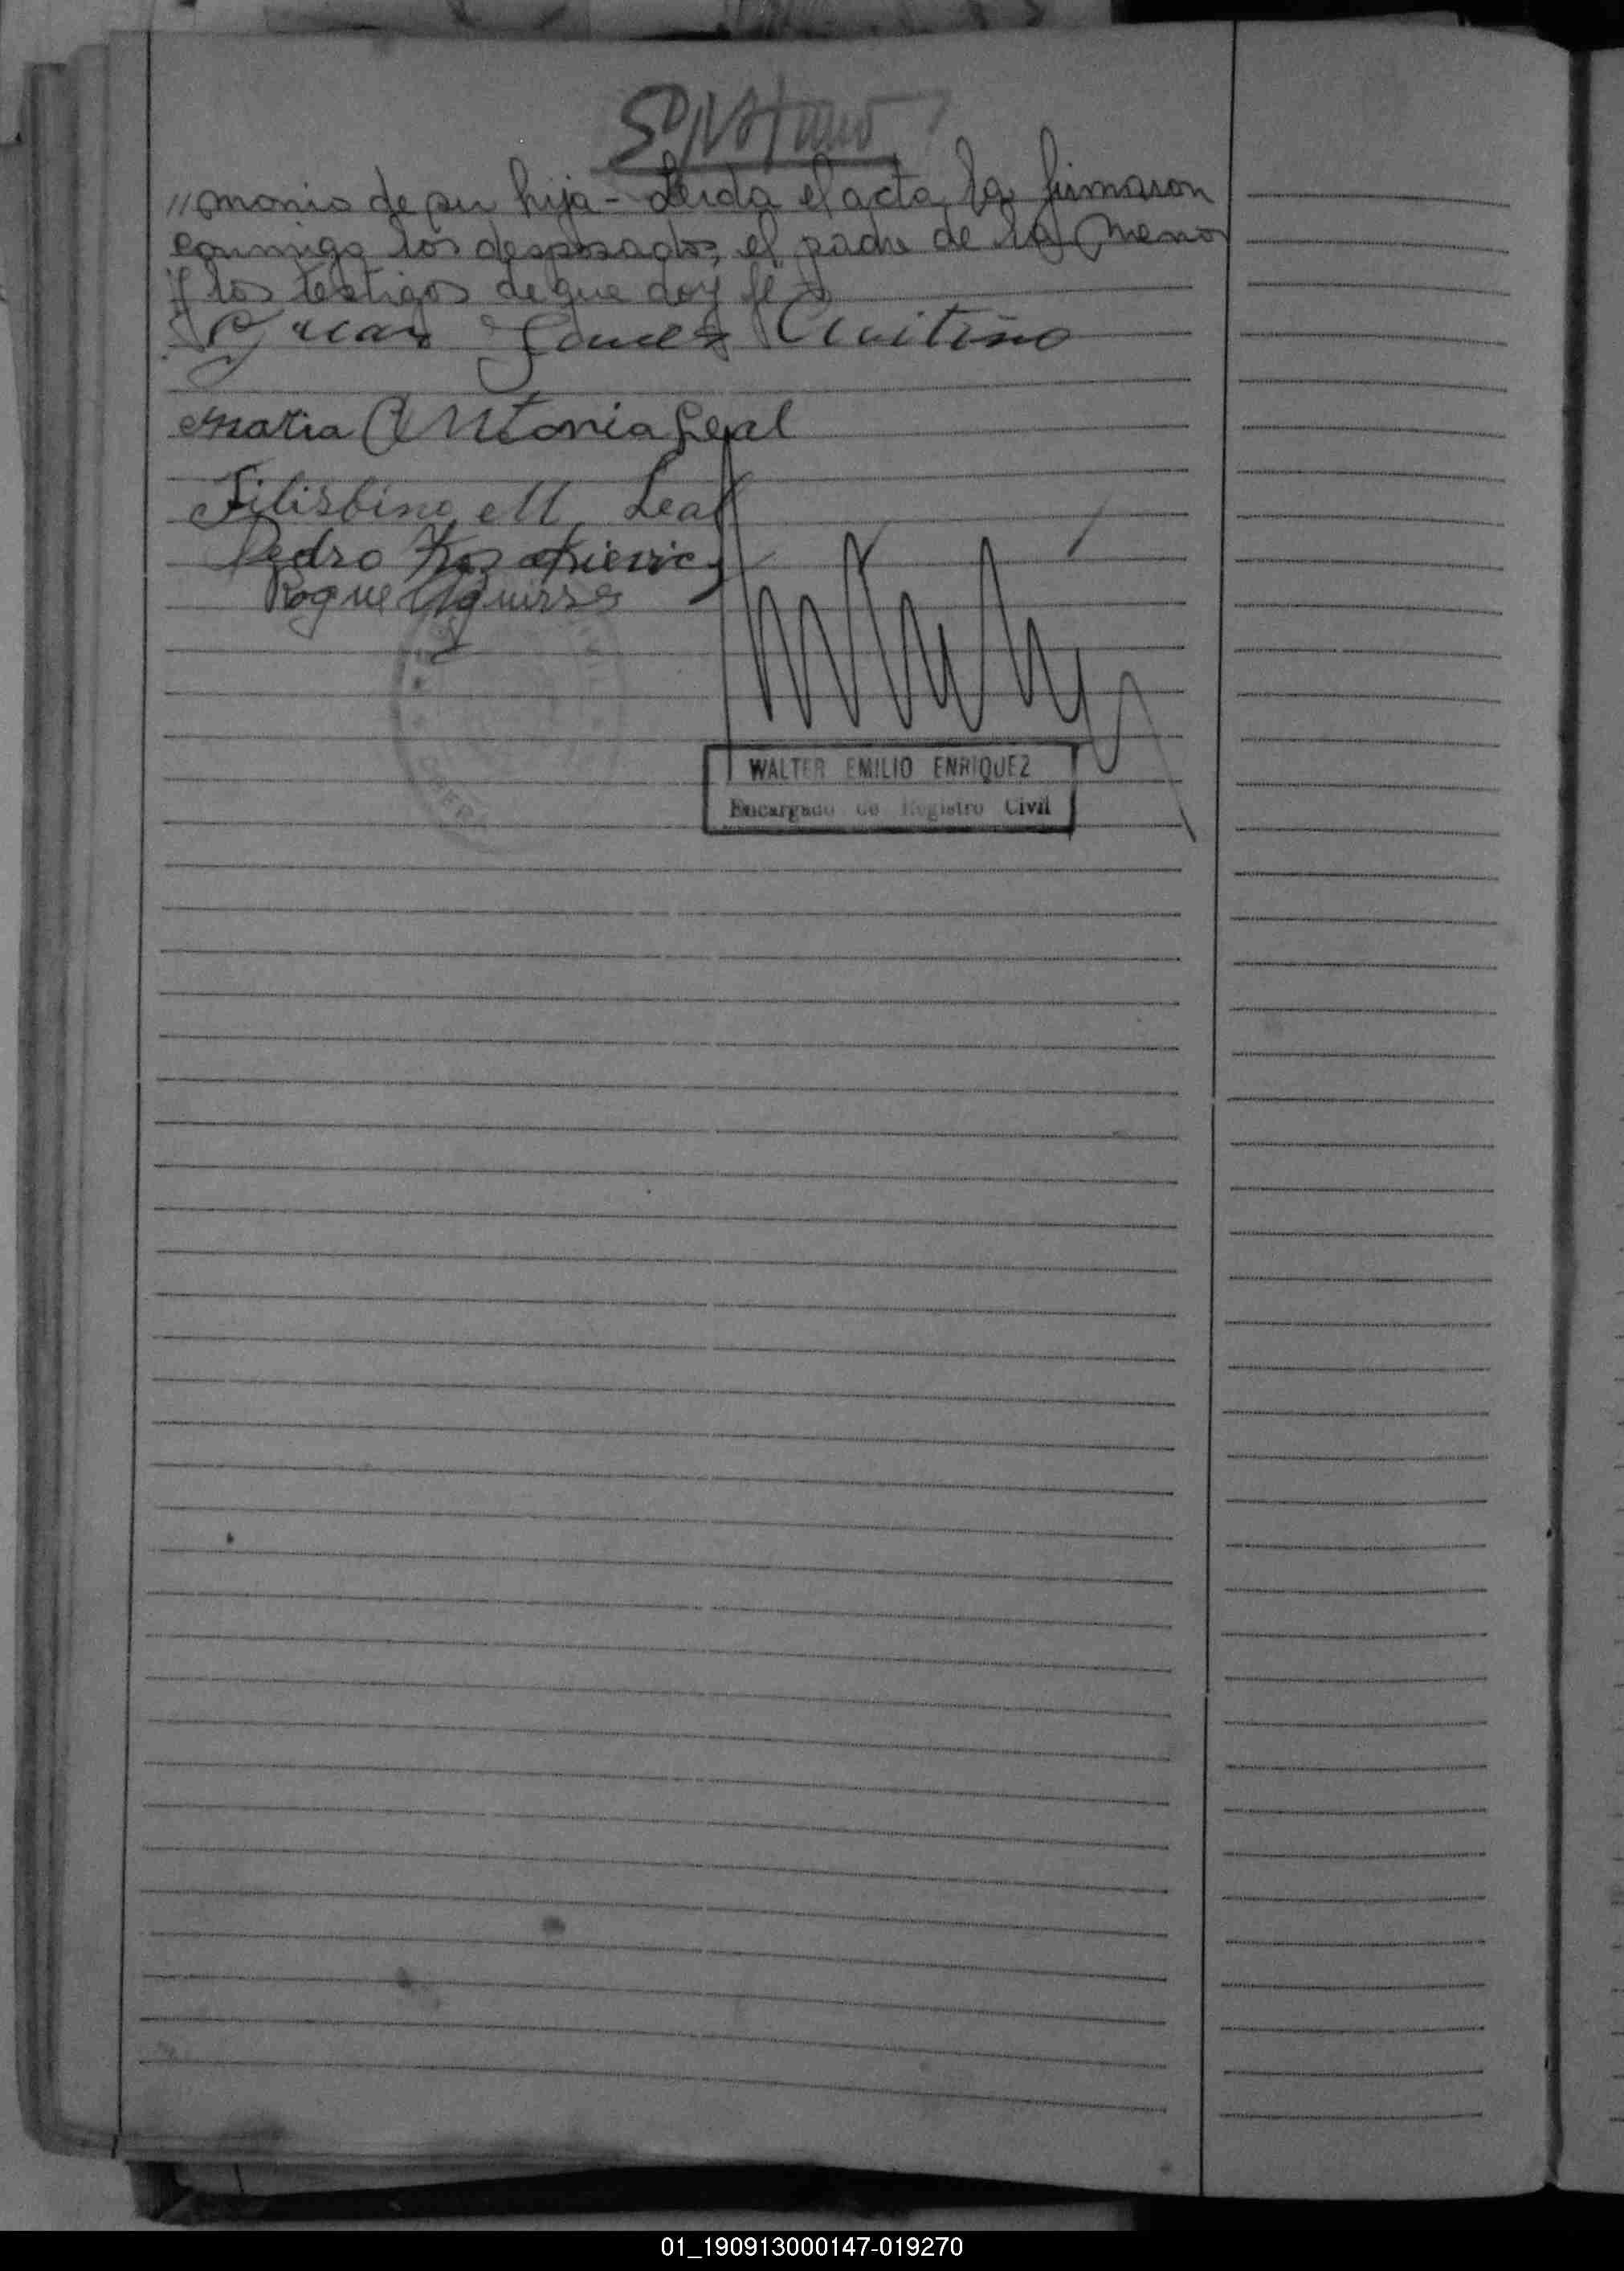 //monio de su hija - Leida el acta, la firmaron
conmigo los desposados, el padre de la menor
y los testigos de que doy fé
Juan Gomez Cuitiño
Maria Antonia Leal
Filisbino M. Leal
Pedro
Roque Aguirre
WALTER EMILIO ENRIQUEZ
Encargado de Registro Civil
01_190913000147-019270